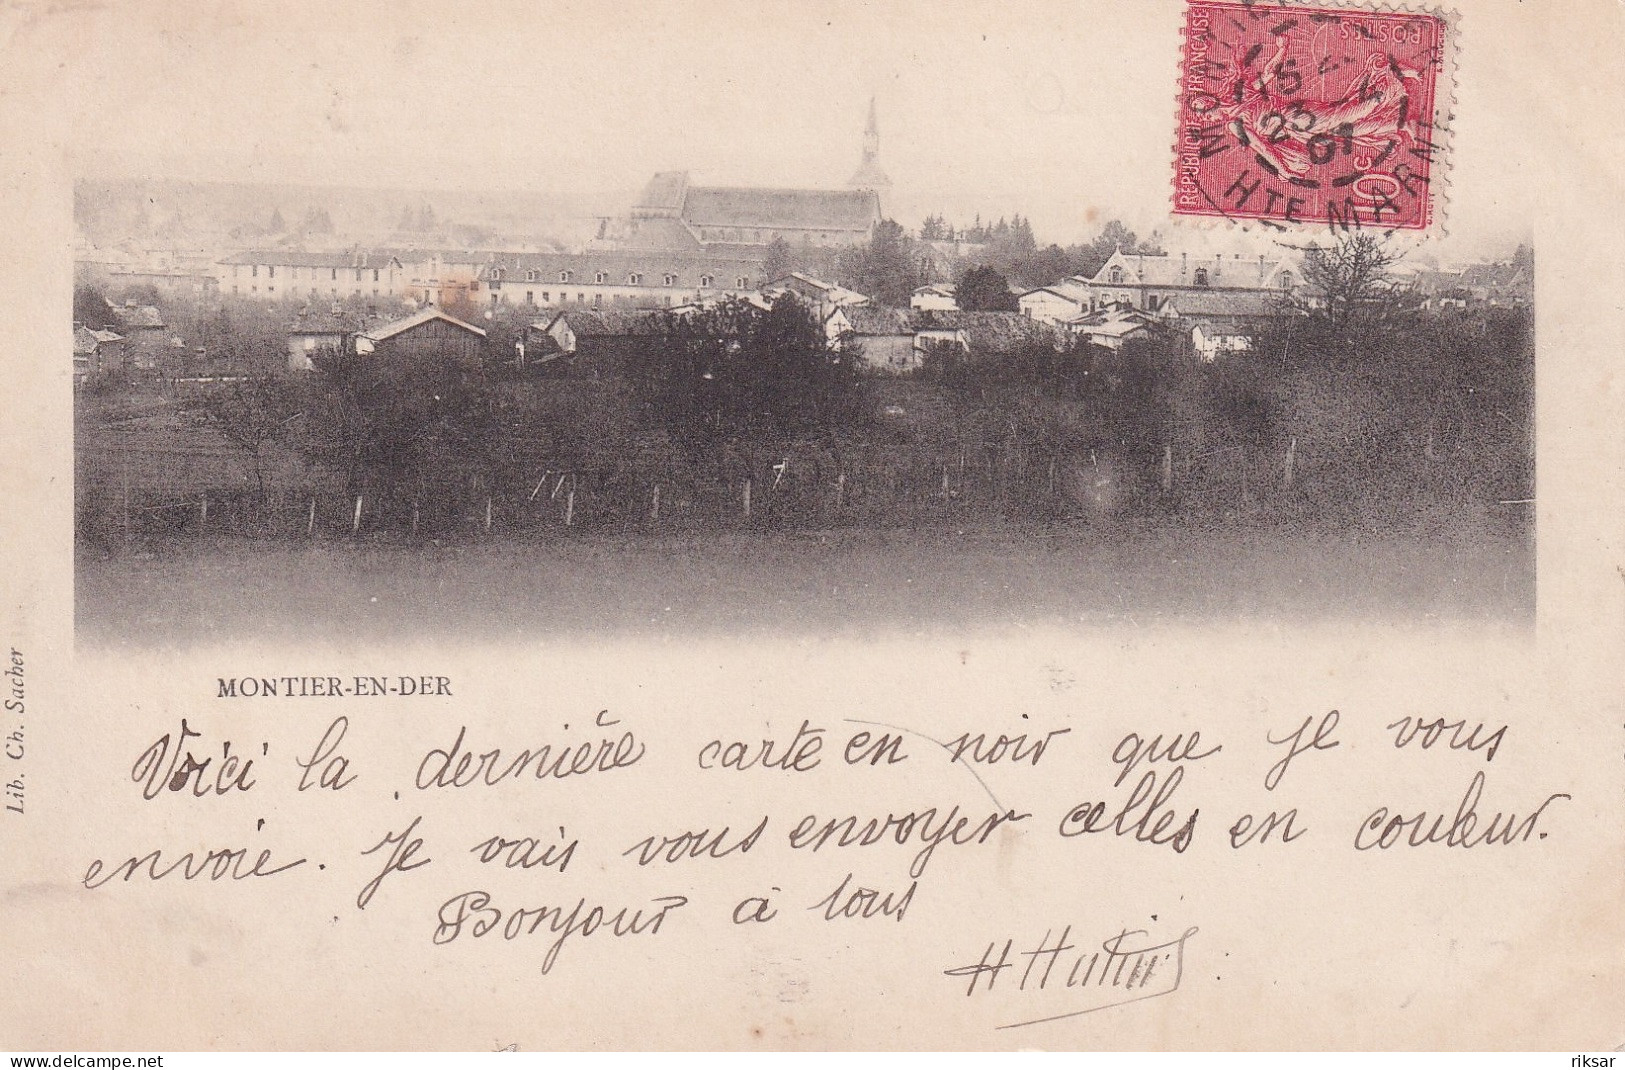 RÉPUBLIQUE FRANÇAISE
POSTES
10 c
MONTIER
23
HTE MARNE
MONTIER-EN-DER
Lib. Ch. Sacher
Voici la dernière carte en noir que je vous
envoie. Je vais vous envoyer celles en couleur.
Bonjour à tous
www.delcampe.net
riksar